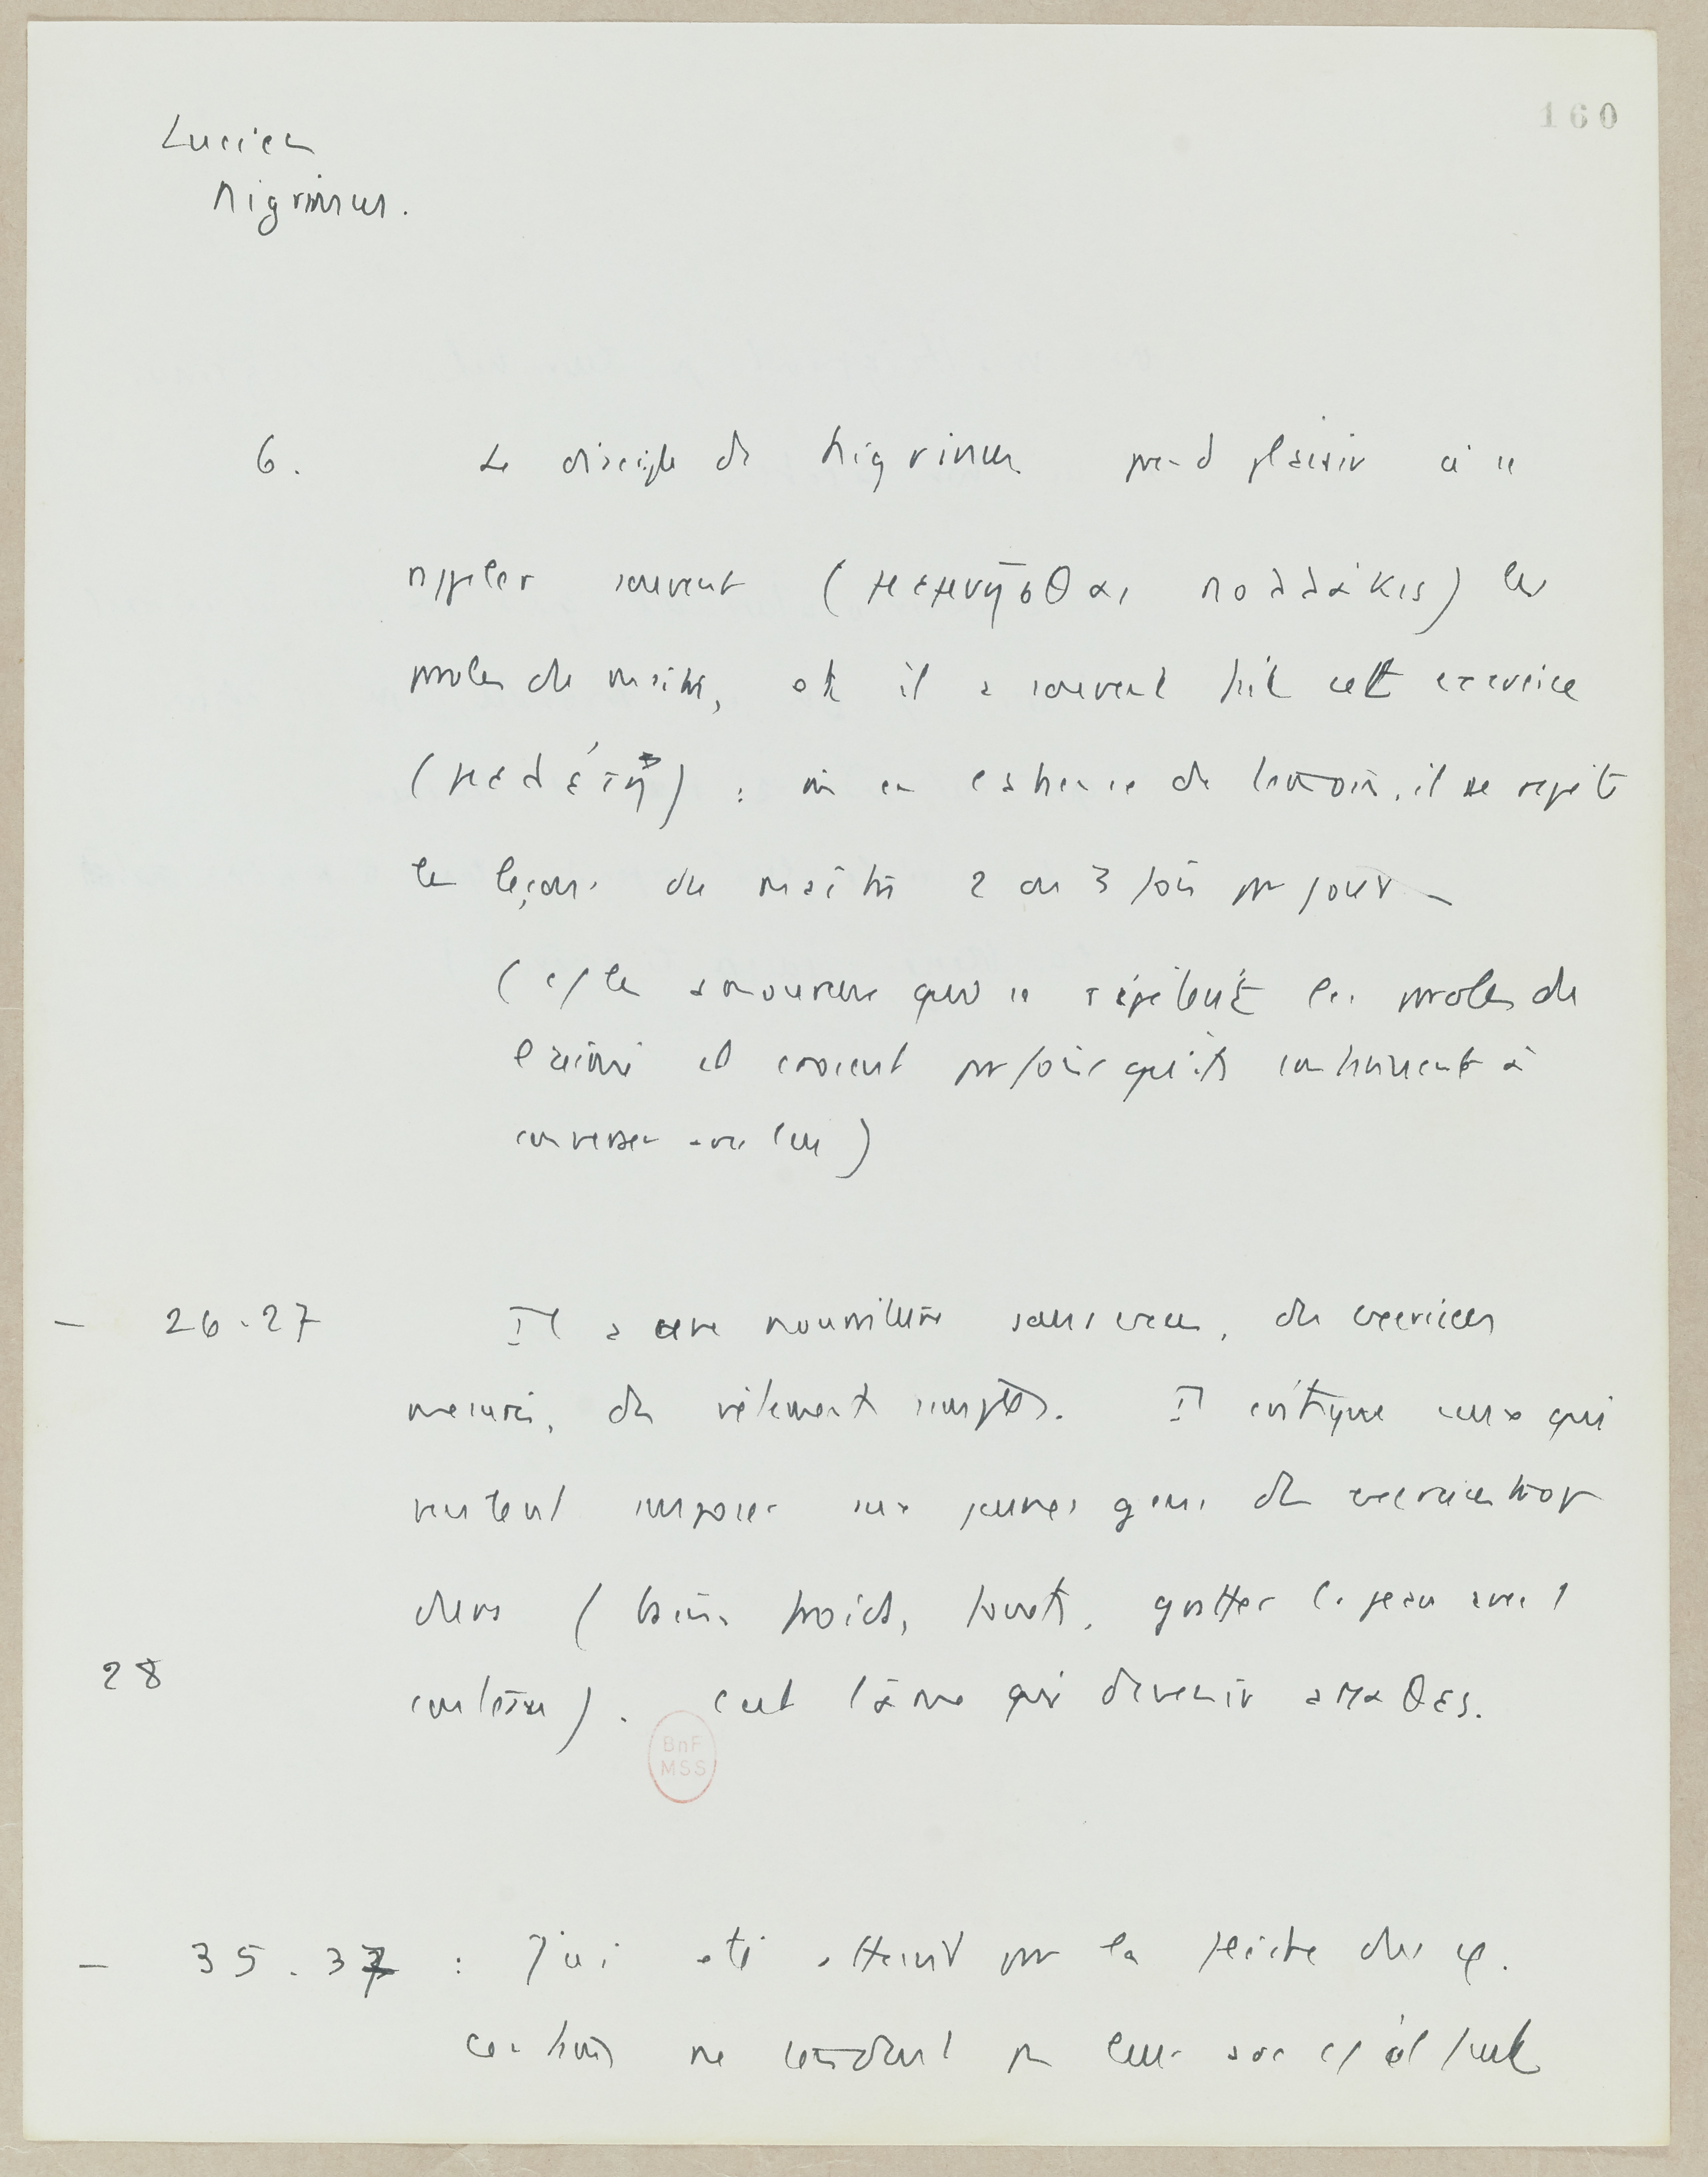 160
Lucien
Nigrinus.
6. Le disciple de Nigrinus prend plaisir à se
rappeler souvent (μεμνῆσθαι πολλάκις) les
paroles du maître, et il a souvent fait cet exercice
(μελέτη) : en absence de témoin, il se répète
les leçons du maître 2 ou 3 fois par jour –
(cf les amoureux qui se répètent les paroles de
l'aimé et croient parfois qu'ils continuent à
converser avec lui)
– 26.27 Il a une nourriture sans excès, des exercices
mesurés, des vêtements simples. Il critique ceux qui
veulent imposer aux jeunes gens des exercices trop
durs (bains froids, fouets, gratter la peau avec 1
couteau).
28 C'est l'âme qui devenir απαθες.
– 35.37 : J'ai été atteint par la flèche des φ.
Certains ne tendent pas leur arc cf il faut